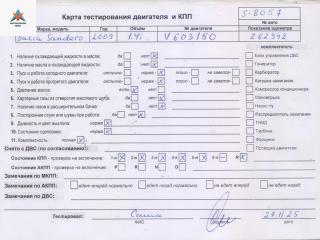 Карта тестирования двигателя и КПП
S-8057
№ авто
Марка, модель Год Объём № двигателя Показание одометра
Dacia Sandero 2009 1.4 V603150 262392
комплектность
1. Наличие охлаждающей жидкости в масле: да нет X
2. Наличие масла в охлаждающей жидкости: да нет X
3. Пуск и работа холодного двигателя: отлично нормально X плохо не завелся
4. Пуск и работа прогретого двигателя: отлично нормально X плохо не завелся
5. Давление масла: есть X нет
6. Картерные газы из отверстия масляного щупа: да нет X
7. Наличие масла в расширительном бачке: да нет X
8. Посторонние стуки или шумы при работе: да нет X
9. Дымность и цвет выхлопа: да нет X
10. Состояние нормальное: да X нет
11. Комплектность: полный X
Блок управления ДВС
Генератор
Карбюратор
Катушка зажигания
Компрессор кондиционера
Маховик
Насос гту
Распределитель зажигания
ТНВД
Турбина
Форсунки
Проводка двигателя
Снято с ДВС (по согласованию):
Состояние КПП - проверка на включение: 1 X 2 X 3 X 4 X 5 X 6 R X
Состояние АКПП - проверка на включение: P R N D
Замечания по МКПП:
Замечания по АКПП: едет вперёд нормально едет назад нормально не едет вперёд не едет назад
Замечания по ДВС:
Тестировал: Саша 27.11.25
ФИО подпись дата